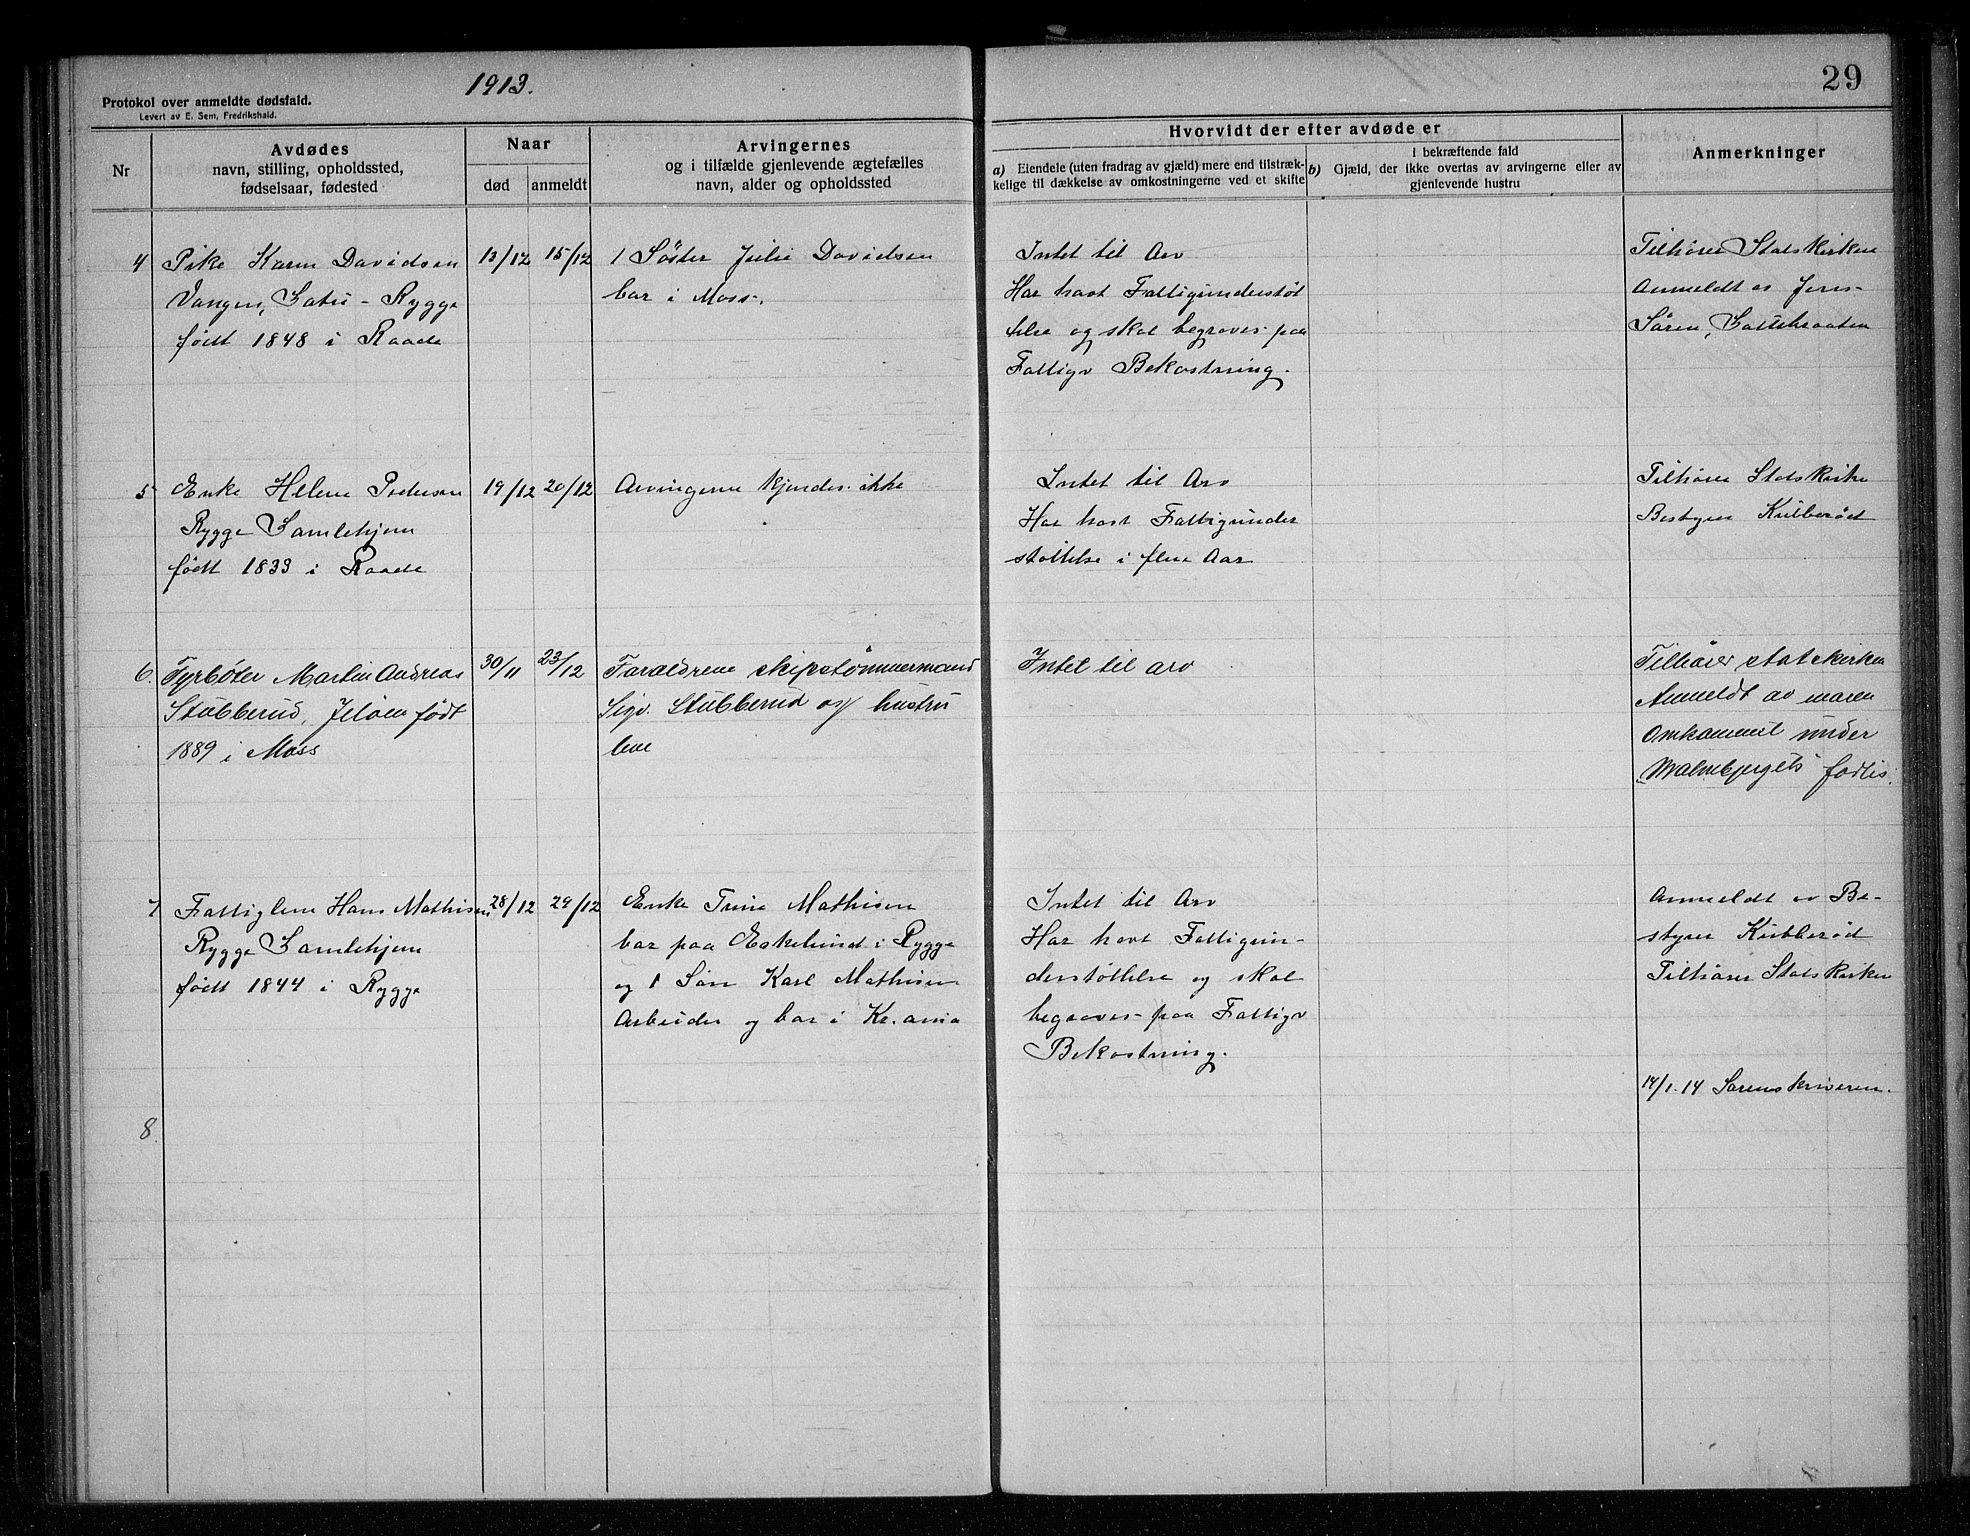 1913.
29
Protokol over anmeldte dødsfald.
Levert av E. Sem, Fredrikshald.
Nr
Avdødes
navn, stilling, opholdssted,
fødselsaar, fødested
Naar
død
anmeldt
Arvingernes
og i tilfælde gjenlevende ægtefælles
navn, alder og opholdssted
Hvorvidt der efter avdøde er
a) Eiendele (uten fradrag av gjæld) mere end tilstræk-
kelige til dækkelse av omkostningerne ved et skifte
I bekræftende fald
b) Gjæld, der ikke overtas av arvingerne eller av
gjenlevende hustru
Anmerkninger
4
Pike Karen Davidsen
Vangen, - Rygge
født 1848 i Raade
13/12
15/12
1 Søster Julie Davidsen
bor i Moss.
Intet til Arv
Har havt Fattigunderstøt
telse og skal begraves paa
Fattigv Bekostning.
Tilhører Statskirken
Anmeldt av Jens
5
Enke Helene Pedersen
Rygge Samlehjem
født 1833 i Raade
19/12
20/12
Arvingerne kjendes ikke
Intet til Arv
Har havt Fattigunder
støttelse i flere Aar
Tilhører Statskirke
Bestyrer Kubberød
6.
Fyrbøter Martin Andreas
Stubberud, Jeløen født
1889 i Moss
30/11
23/12
Forældrene skipstømmermand
Sigv. Stubberud og hustru
Intet til arv
Tilhører statskirken
Anmeldt av moren
Omkommet under
"Malmbjergets" forlis.
7
Fattiglem Hans Mathisen
Rygge Samlehjem
født 1844 i Rygge
28/12
29/12
Enke Trine Mathisen
bor paa Eskelund i Rygge
og 1 Søn Karl Mathisen
Arbeider og bor i Kr.ania
Intet til Arv
Har havt Fattigun-
derstøttelse og skal
begraves paa Fattigv
Bekostning.
Anmeldt av Be-
styrer Kubberød
Tilhører Statskirken
14/1. 14 Sorenskriveren.
8.